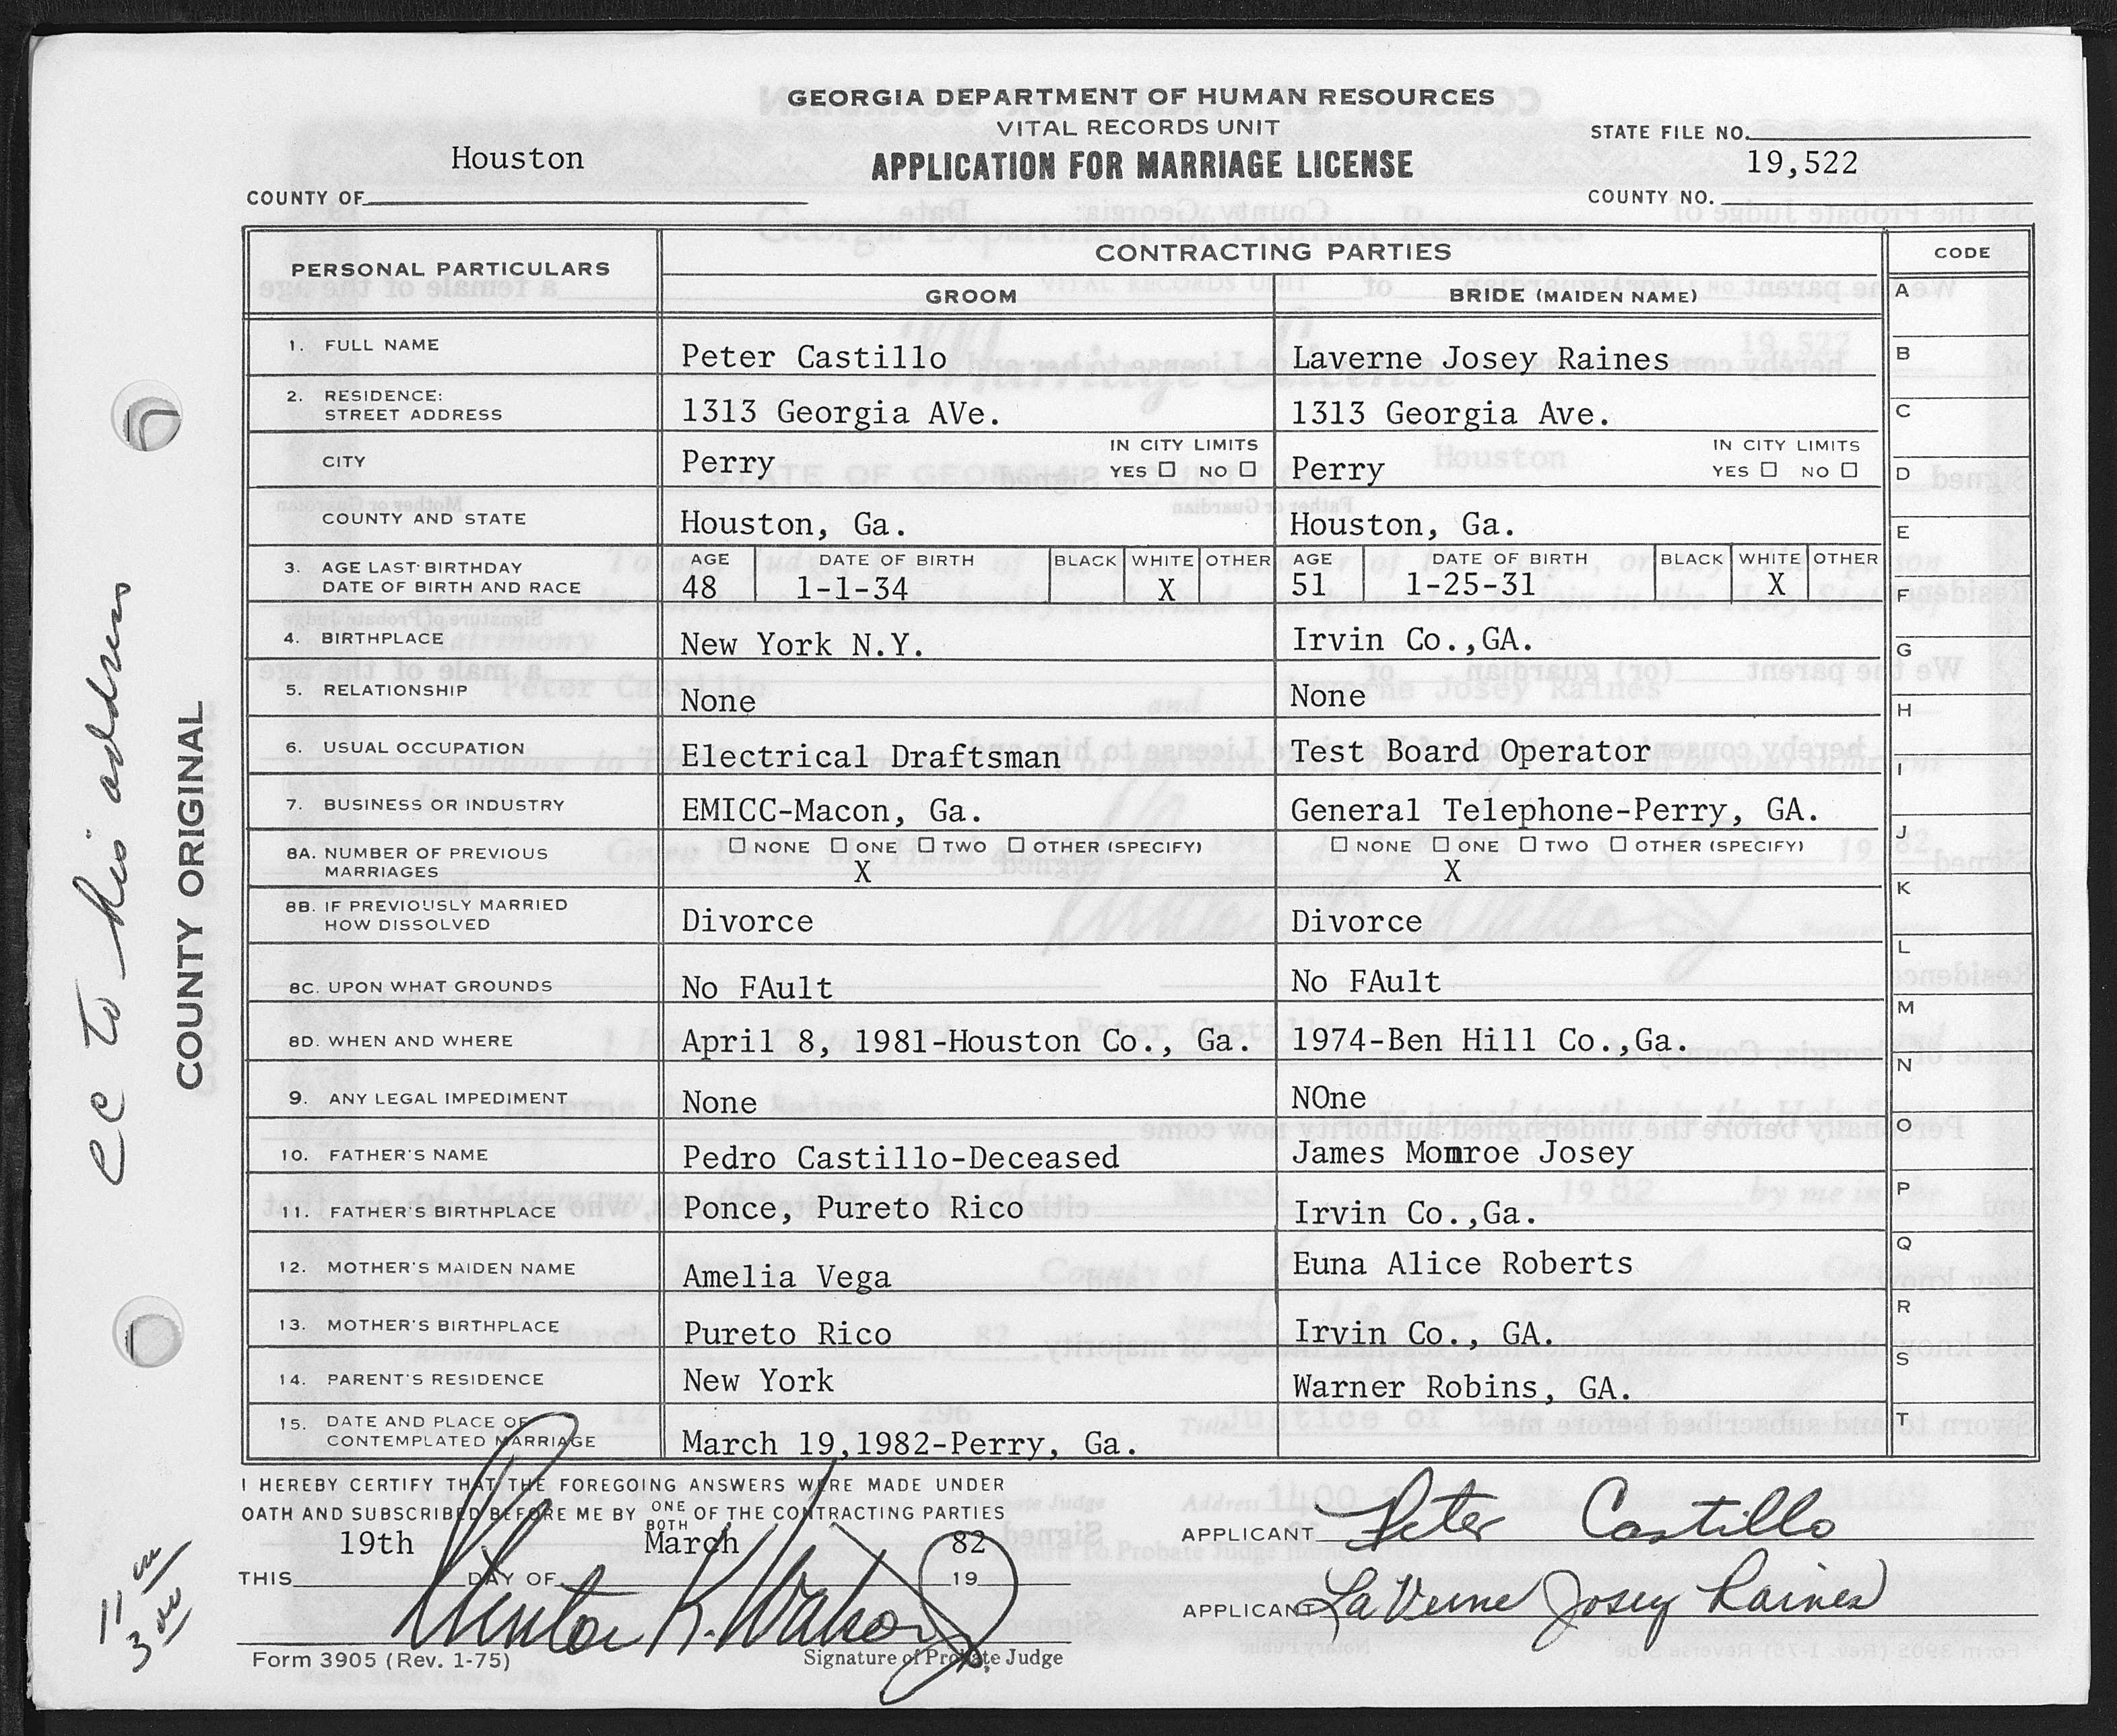 GEORGIA DEPARTMENT OF HUMAN RESOURCES
VITAL RECORDS UNIT
APPLICATION FOR MARRIAGE LICENSE
STATE FILE NO.
COUNTY OF Houston
COUNTY NO. 19,522
PERSONAL PARTICULARS CONTRACTING PARTIES CODE
GROOM BRIDE (MAIDEN NAME) A
1. FULL NAME Peter Castillo Laverne Josey Raines B
2. RESIDENCE: STREET ADDRESS 1313 Georgia AVe. 1313 Georgia Ave. C
CITY Perry IN CITY LIMITS YES ☐ NO ☐ Perry IN CITY LIMITS YES ☐ NO ☐ D
COUNTY AND STATE Houston, Ga. Houston, Ga. E
3. AGE LAST BIRTHDAY DATE OF BIRTH AND RACE AGE 48 DATE OF BIRTH 1-1-34 BLACK WHITE X OTHER AGE 51 DATE OF BIRTH 1-25-31 BLACK WHITE X OTHER F
4. BIRTHPLACE New York N.Y. Irvin Co.,GA. G
5. RELATIONSHIP None None H
6. USUAL OCCUPATION Electrical Draftsman Test Board Operator I
7. BUSINESS OR INDUSTRY EMICC-Macon, Ga. General Telephone-Perry, GA.
8A. NUMBER OF PREVIOUS MARRIAGES ☐ NONE ☐ ONE X ☐ TWO ☐ OTHER (SPECIFY) ☐ NONE ☐ ONE X ☐ TWO ☐ OTHER (SPECIFY) J
8B. IF PREVIOUSLY MARRIED HOW DISSOLVED Divorce Divorce K
L
8C. UPON WHAT GROUNDS No FAult No FAult
8D. WHEN AND WHERE April 8, 1981-Houston Co., Ga. 1974-Ben Hill Co.,Ga. M
9. ANY LEGAL IMPEDIMENT None NOne N
10. FATHER'S NAME Pedro Castillo-Deceased James Monroe Josey O
11. FATHER'S BIRTHPLACE Ponce, Pureto Rico Irvin Co.,Ga. P
12. MOTHER'S MAIDEN NAME Amelia Vega Euna Alice Roberts Q
13. MOTHER'S BIRTHPLACE Pureto Rico Irvin Co., GA. R
14. PARENT'S RESIDENCE New York Warner Robins, GA. S
15. DATE AND PLACE OF CONTEMPLATED MARRIAGE March 19,1982-Perry, Ga. T
I HEREBY CERTIFY THAT THE FOREGOING ANSWERS WERE MADE UNDER
OATH AND SUBSCRIBED BEFORE ME BY ONE BOTH OF THE CONTRACTING PARTIES
THIS 19th DAY OF March 19 82
Signature of Probate Judge
APPLICANT Peter Castillo
APPLICANT LaVerne Josey Raines
Form 3905 (Rev. 1-75)
COUNTY ORIGINAL
cc to his address
11 00
3 00